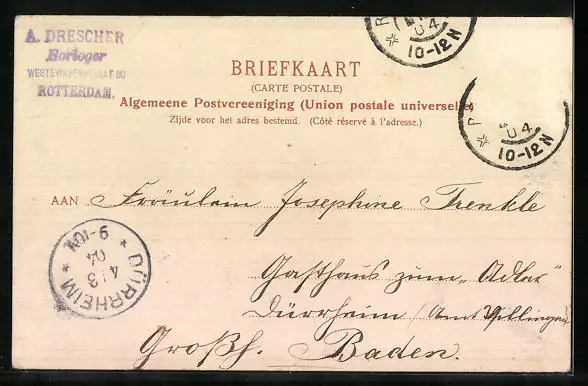 A. DRESCHER
Horloger
ROTTERDAM.
04
10-12 N
BRIEFKAART
(CARTE POSTALE)
Algemeene Postvereeniging (Union postale universelle)
Zijde voor het adres bestemd. (Côté réservé à l'adresse.)
04
10-12 N
AAN Fräulein Josephine Trenkle
Gasthaus zum „Adler"
Dürrheim (Amt Villingen)
Großh. Baden.
DÜRRHEIM
4 13
04
9-10V